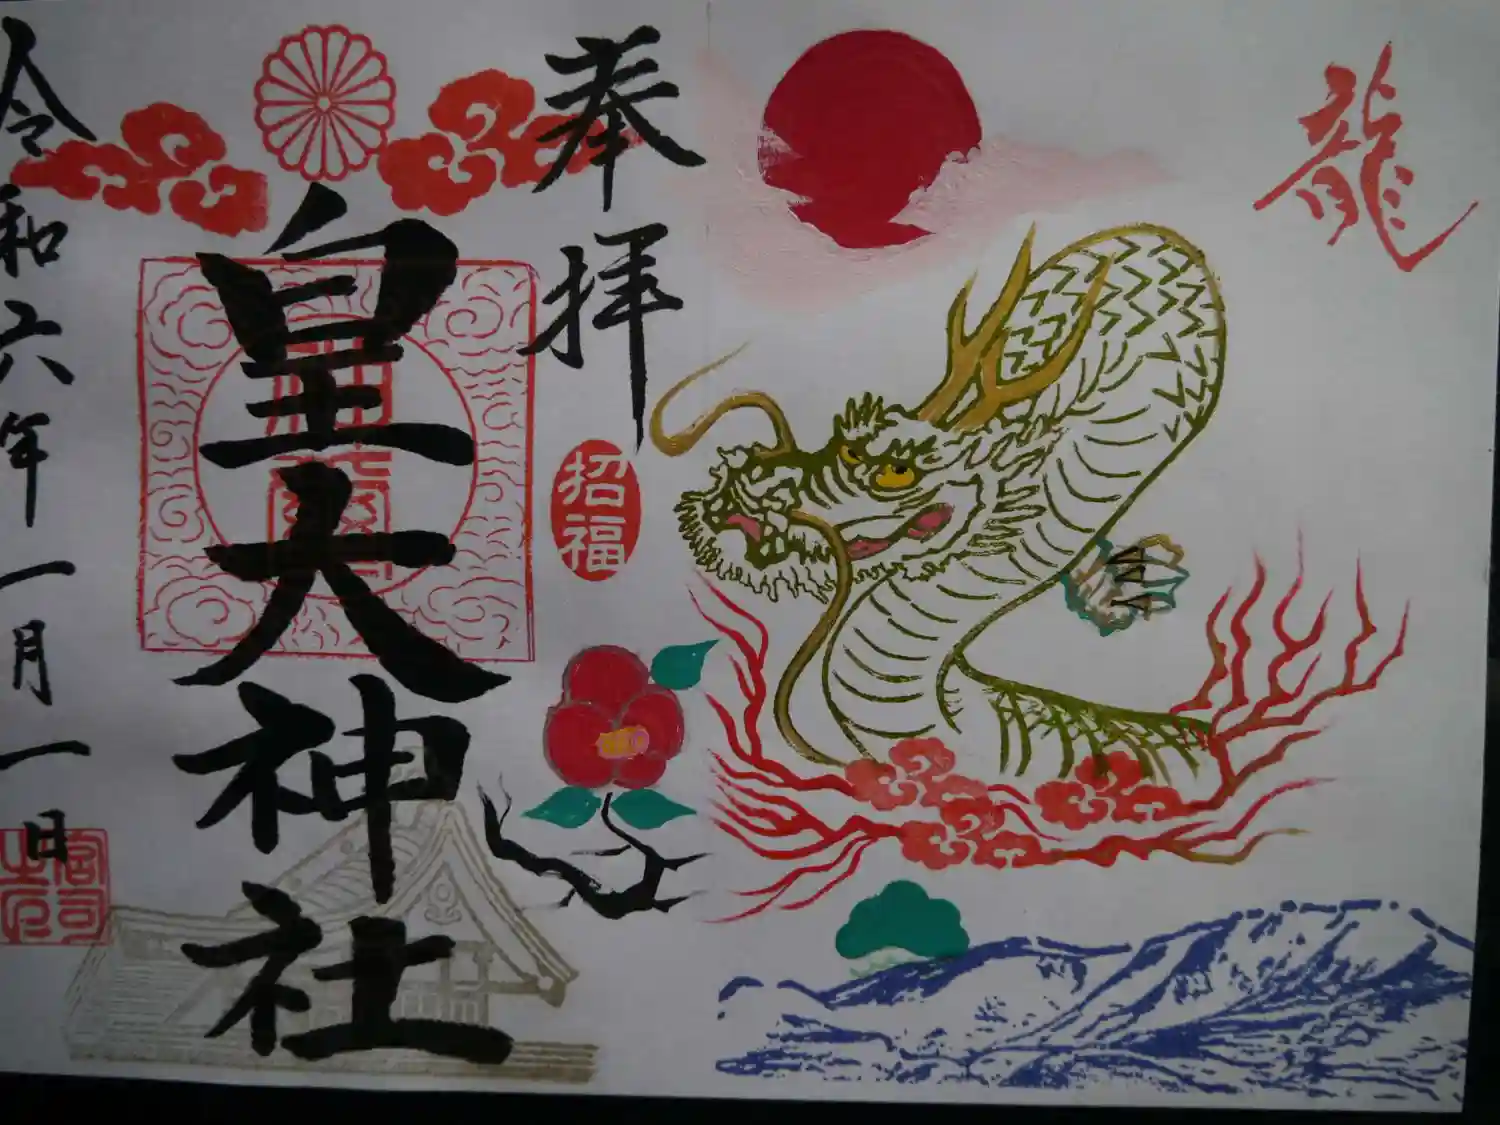 龍
奉拝
招福
皇大神社
令和六年一月一日